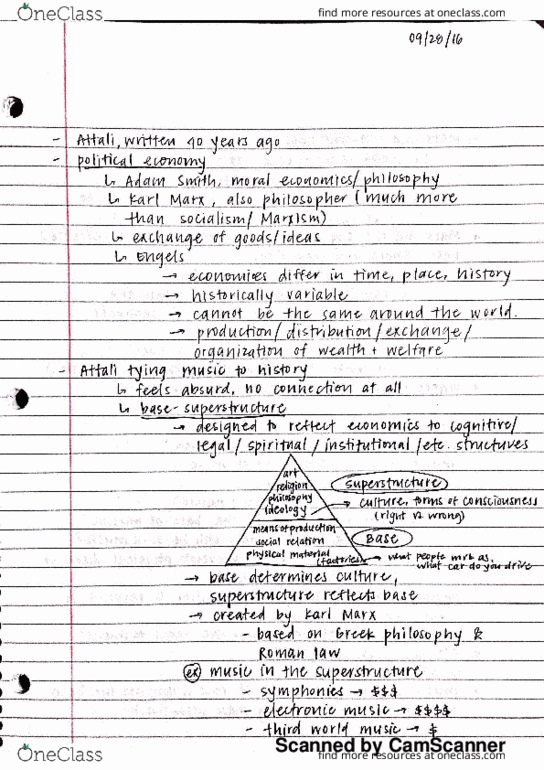 OneClass
find more resources at oneclass.com
09/28/16
- Attali, written 40 years ago
- political economy
↳ Adam Smith, moral economics/philosophy
↳ Karl Marx, also philosopher (much more
than socialism/Marxism)
↳ exchange of goods/ideas
↳ Engels
→ economies differ in time, place, history
→ historically variable
→ cannot be the same around the world.
→ production/distribution/exchange/
organization of wealth + welfare
- Attali tying music to history
↳ feels absurd, no connection at all
↳ base-superstructure
→ designed to reflect economics to cognitive/
legal/spiritual/institutional/etc. structures
art
religion
superstructure
philosophy
ideology
→ culture, forms of consciousness
(right vs wrong)
means of production
social relation
Base
physical material
(factories)
→ what people work as,
what car do you drive
→ base determines culture,
superstructure reflects base
→ created by Karl Marx
- based on Greek philosophy &
Roman law
ex music in the superstructure
- symphonies → $$$
- electronic music → $$$$
- third world music → $
Scanned by CamScanner
OneClass
find more resources at oneclass.com